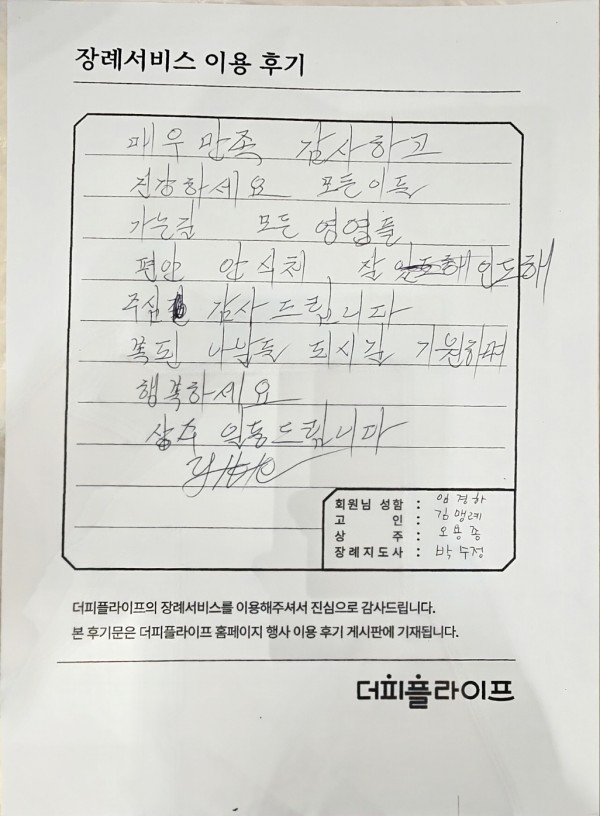 장례서비스 이용 후기
매우 만족 감사하고
건강하세요 모든이들
가는길 모든 영영들
편안 안식처, 잘 인도해
주심 감사드립니다
복된 나날들 되시길 기원하며
행복하세요
상주 일동드립니다
회원님 성함 : 엄경하
고 인 : 김맹례
상 주 : 오용종
장례지도사 : 박두정
더피플라이프의 장례서비스를 이용해주셔서 진심으로 감사드립니다.
본 후기문은 더피플라이프 홈페이지 행사 이용 후기 게시판에 기재됩니다.
더피플라이프